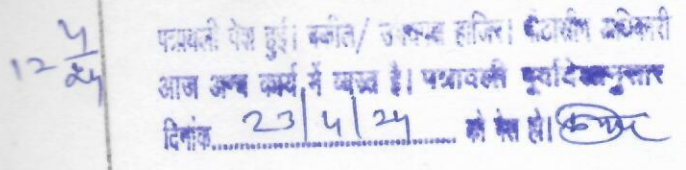 12 4/24
पत्रावली पेश हुई। वकील/ उभयपक्ष हाजिर। पीठासीन अधिकारी
आज अन्य कार्य में व्यस्त है। पत्रावली पूर्वादेशानुसार
दिनांक 23/4/24 को पेश हो।